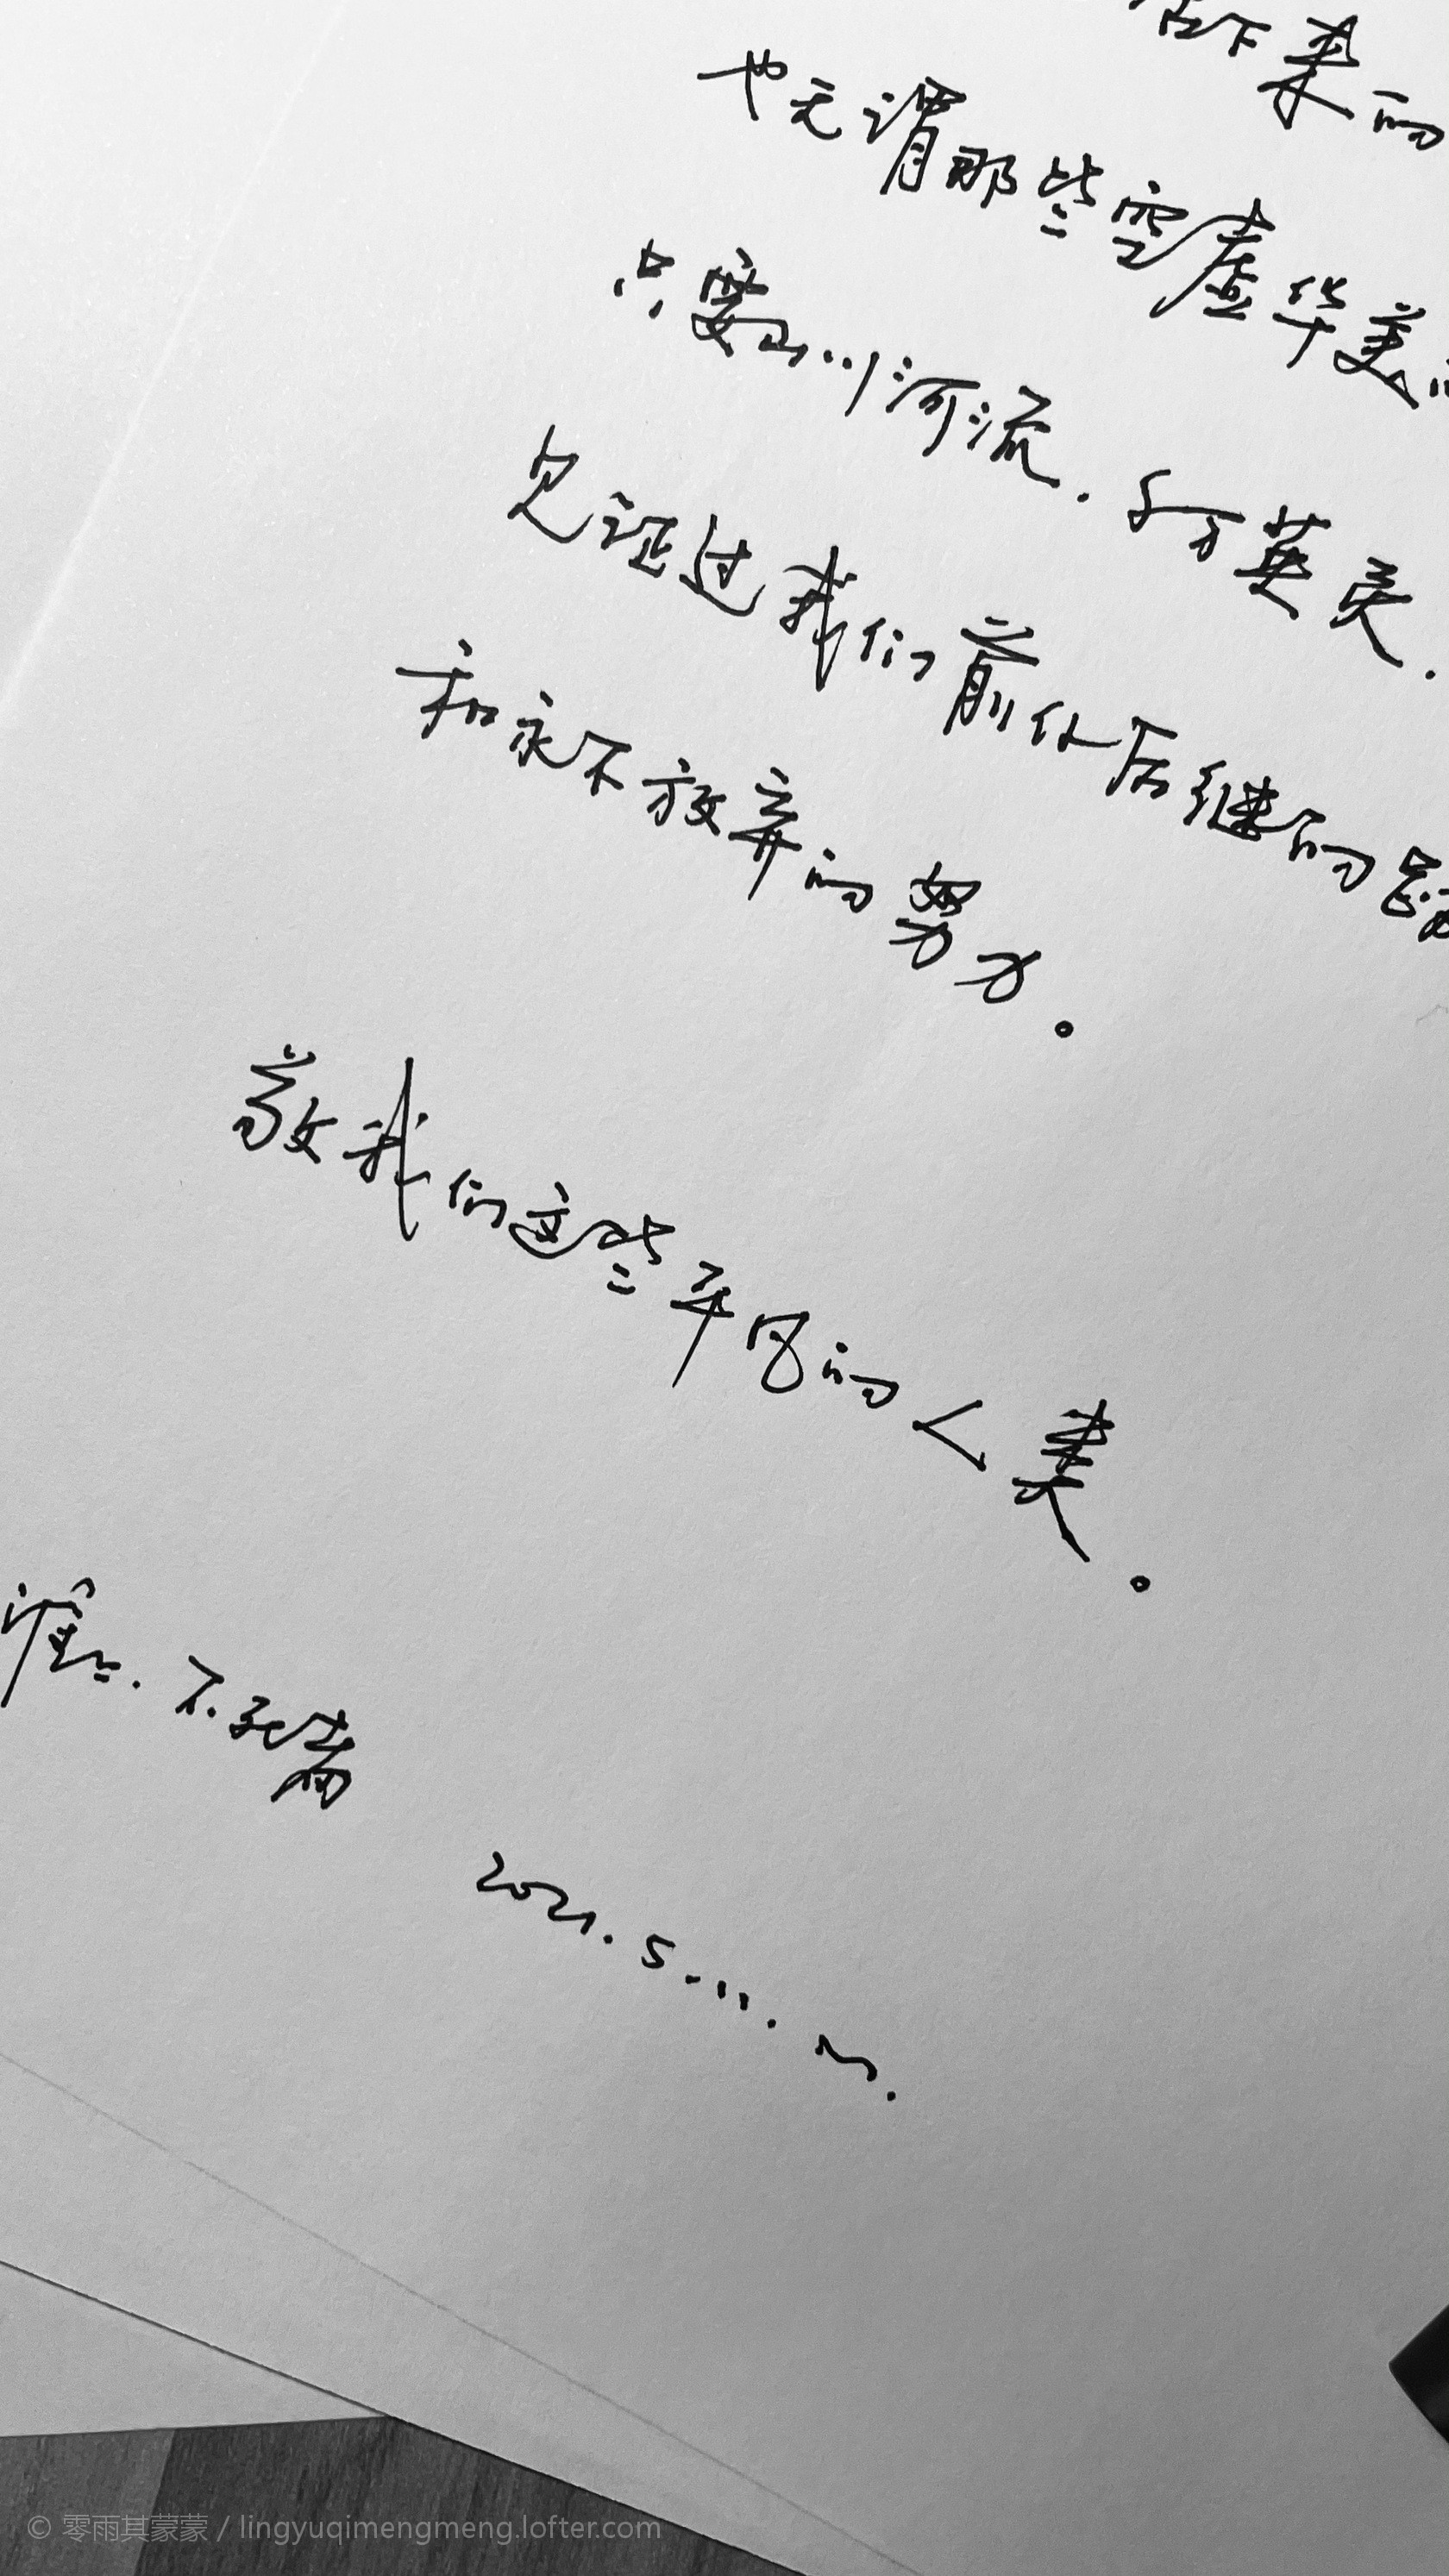 下来的
也无谓那些空虚华美
只要山川河流.千万英灵.
见证过我们前仆后继的
和永不放弃的努力。
敬我们这些平凡的人类。
淮上.不死者
2021.5
© 零雨其蒙蒙 / lingyuqimengmeng.lofter.com